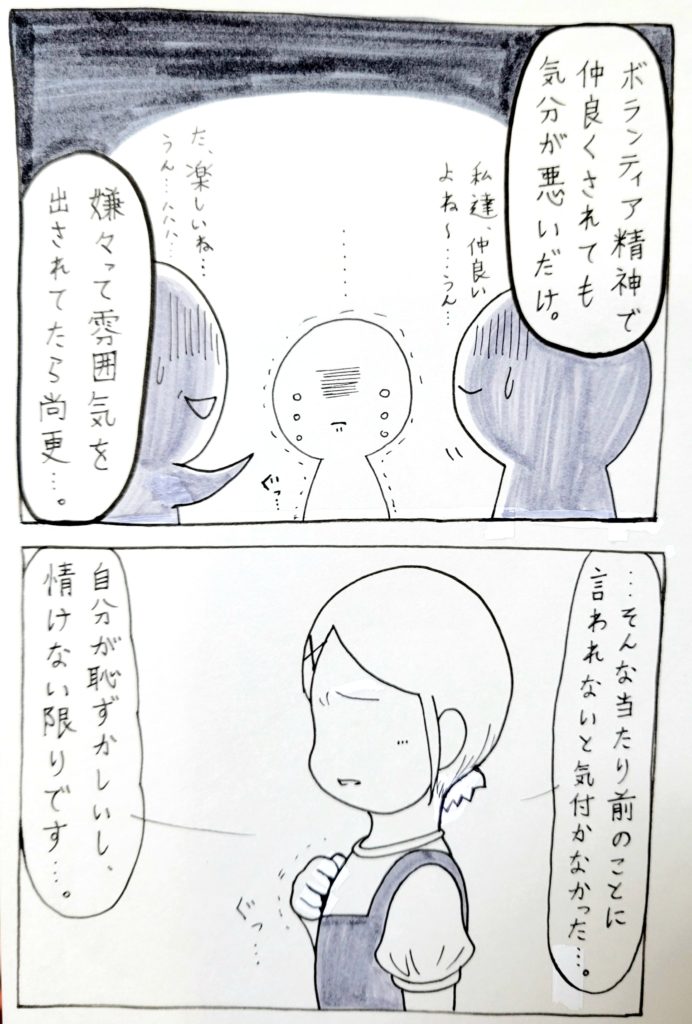 ボランティア精神で
仲良くされても
気分が悪いだけ。
私達、仲良い
よね〜…うん…
……
た、楽しいね…
うん…ハハハ…
嫌々って雰囲気を
出されてたら尚更…。
ぐっ…
…そんな当たり前のことに
言われないと気付かなかった…。
自分が恥ずかしいし、
情けない限りです…。
ぐっ…